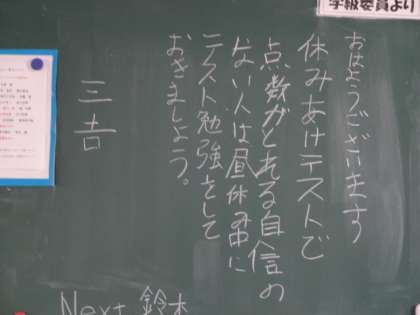 学級委員より
おはようございます
休みあけテストで
点数がとれる自信の
ない人は昼休み中に
テスト勉強をして
おきましょう。
三吉
Next 鈴木